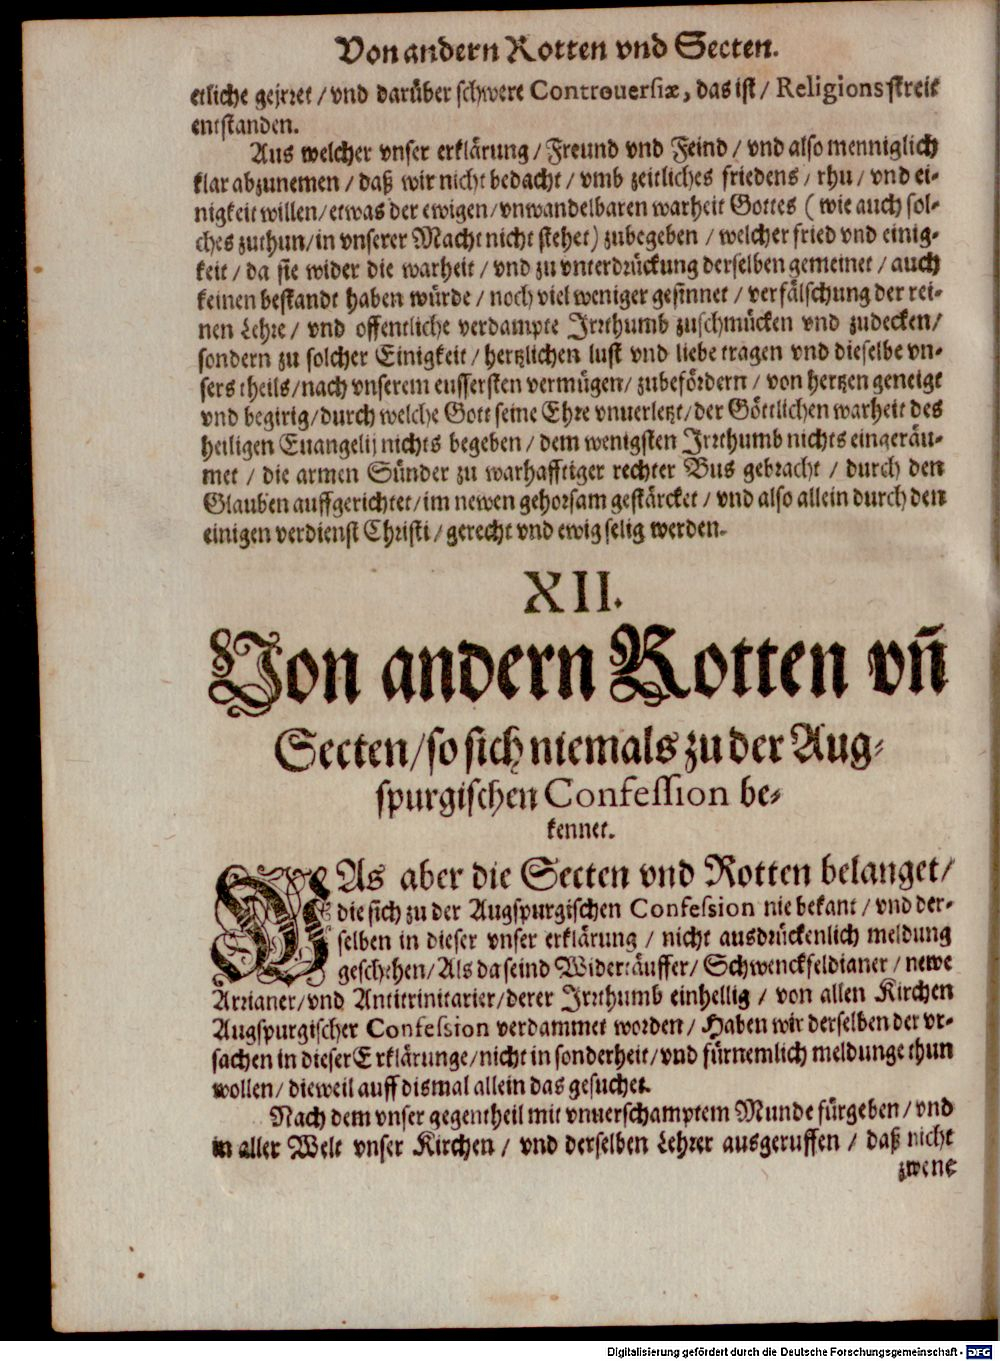 Von andern Rotten vnd Secten.
etliche gejrret / vnd darüber schwere Controuersiæ, das ist / Religionsstreit
entstanden.
Aus welcher vnser erklärung / Freund vnd Feind / vnd also menniglich
klar abzunemen / daß wir nicht bedacht / vmb zeitliches friedens / rhu / vnd ei-
nigkeit willen / etwas der ewigen / vnwandelbaren warheit Gottes ( wie auch sol-
ches zuthun / in vnserer Macht nicht stehet ) zubegeben / welcher fried vnd einig-
keit / da sie wider die warheit / vnd zu vnterdrückung derselben gemeinet / auch
keinen bestandt haben würde / noch viel weniger gesinnet / verfälschung der rei-
nen Lehre / vnd offentliche verdampte Irrthumb zuschmücken vnd zudecken /
sondern zu solcher Einigkeit / hertzlichen lust vnd liebe tragen vnd dieselbe vn-
sers theils / nach vnserem eussersten vermügen / zubefördern / von hertzen geneigt
vnd begirig / durch welche Gott seine Ehre vnuerletzt / der Göttlichen warheit des
heiligen Euangelij nichts begeben / dem wenigsten Irrthumb nichts eingeräu-
met / die armen Sünder zu warhafftiger rechter Bus gebracht / durch den
Glauben auffgerichtet / im newen gehorsam gestärcket / vnd also allein durch den
einigen verdienst Christi / gerecht vnd ewig selig werden.
XII.
Von andern Rotten vñ
Secten / so sich niemals zu der Aug-
spurgischen Confession be-
kennet.
WAs aber die Secten vnd Rotten belanget /
die sich zu der Augspurgischen Confession nie bekant / vnd der-
selben in dieser vnser erklärung / nicht ausdrückenlich meldung
geschehen / Als da seind Widertäuffer / Schwenckfeldianer / newe
Arrianer / vnd Antitrinitarier / derer Irrthumb einhellig / von allen Kirchen
Augspurgischer Confession verdammet worden / Haben wir derselben der vr-
sachen in dieser Erklärunge / nicht in sonderheit / vnd fürnemlich meldunge thun
wollen / dieweil auff dismal allein das gesuchet.
Nach dem vnser gegentheil mit vnuerschamptem Munde fürgeben / vnd
in aller Welt vnser Kirchen / vnd derselben Lehrer ausgeruffen / daß nicht
zwene
Digitalisierung gefördert durch die Deutsche Forschungsgemeinschaft - DFG